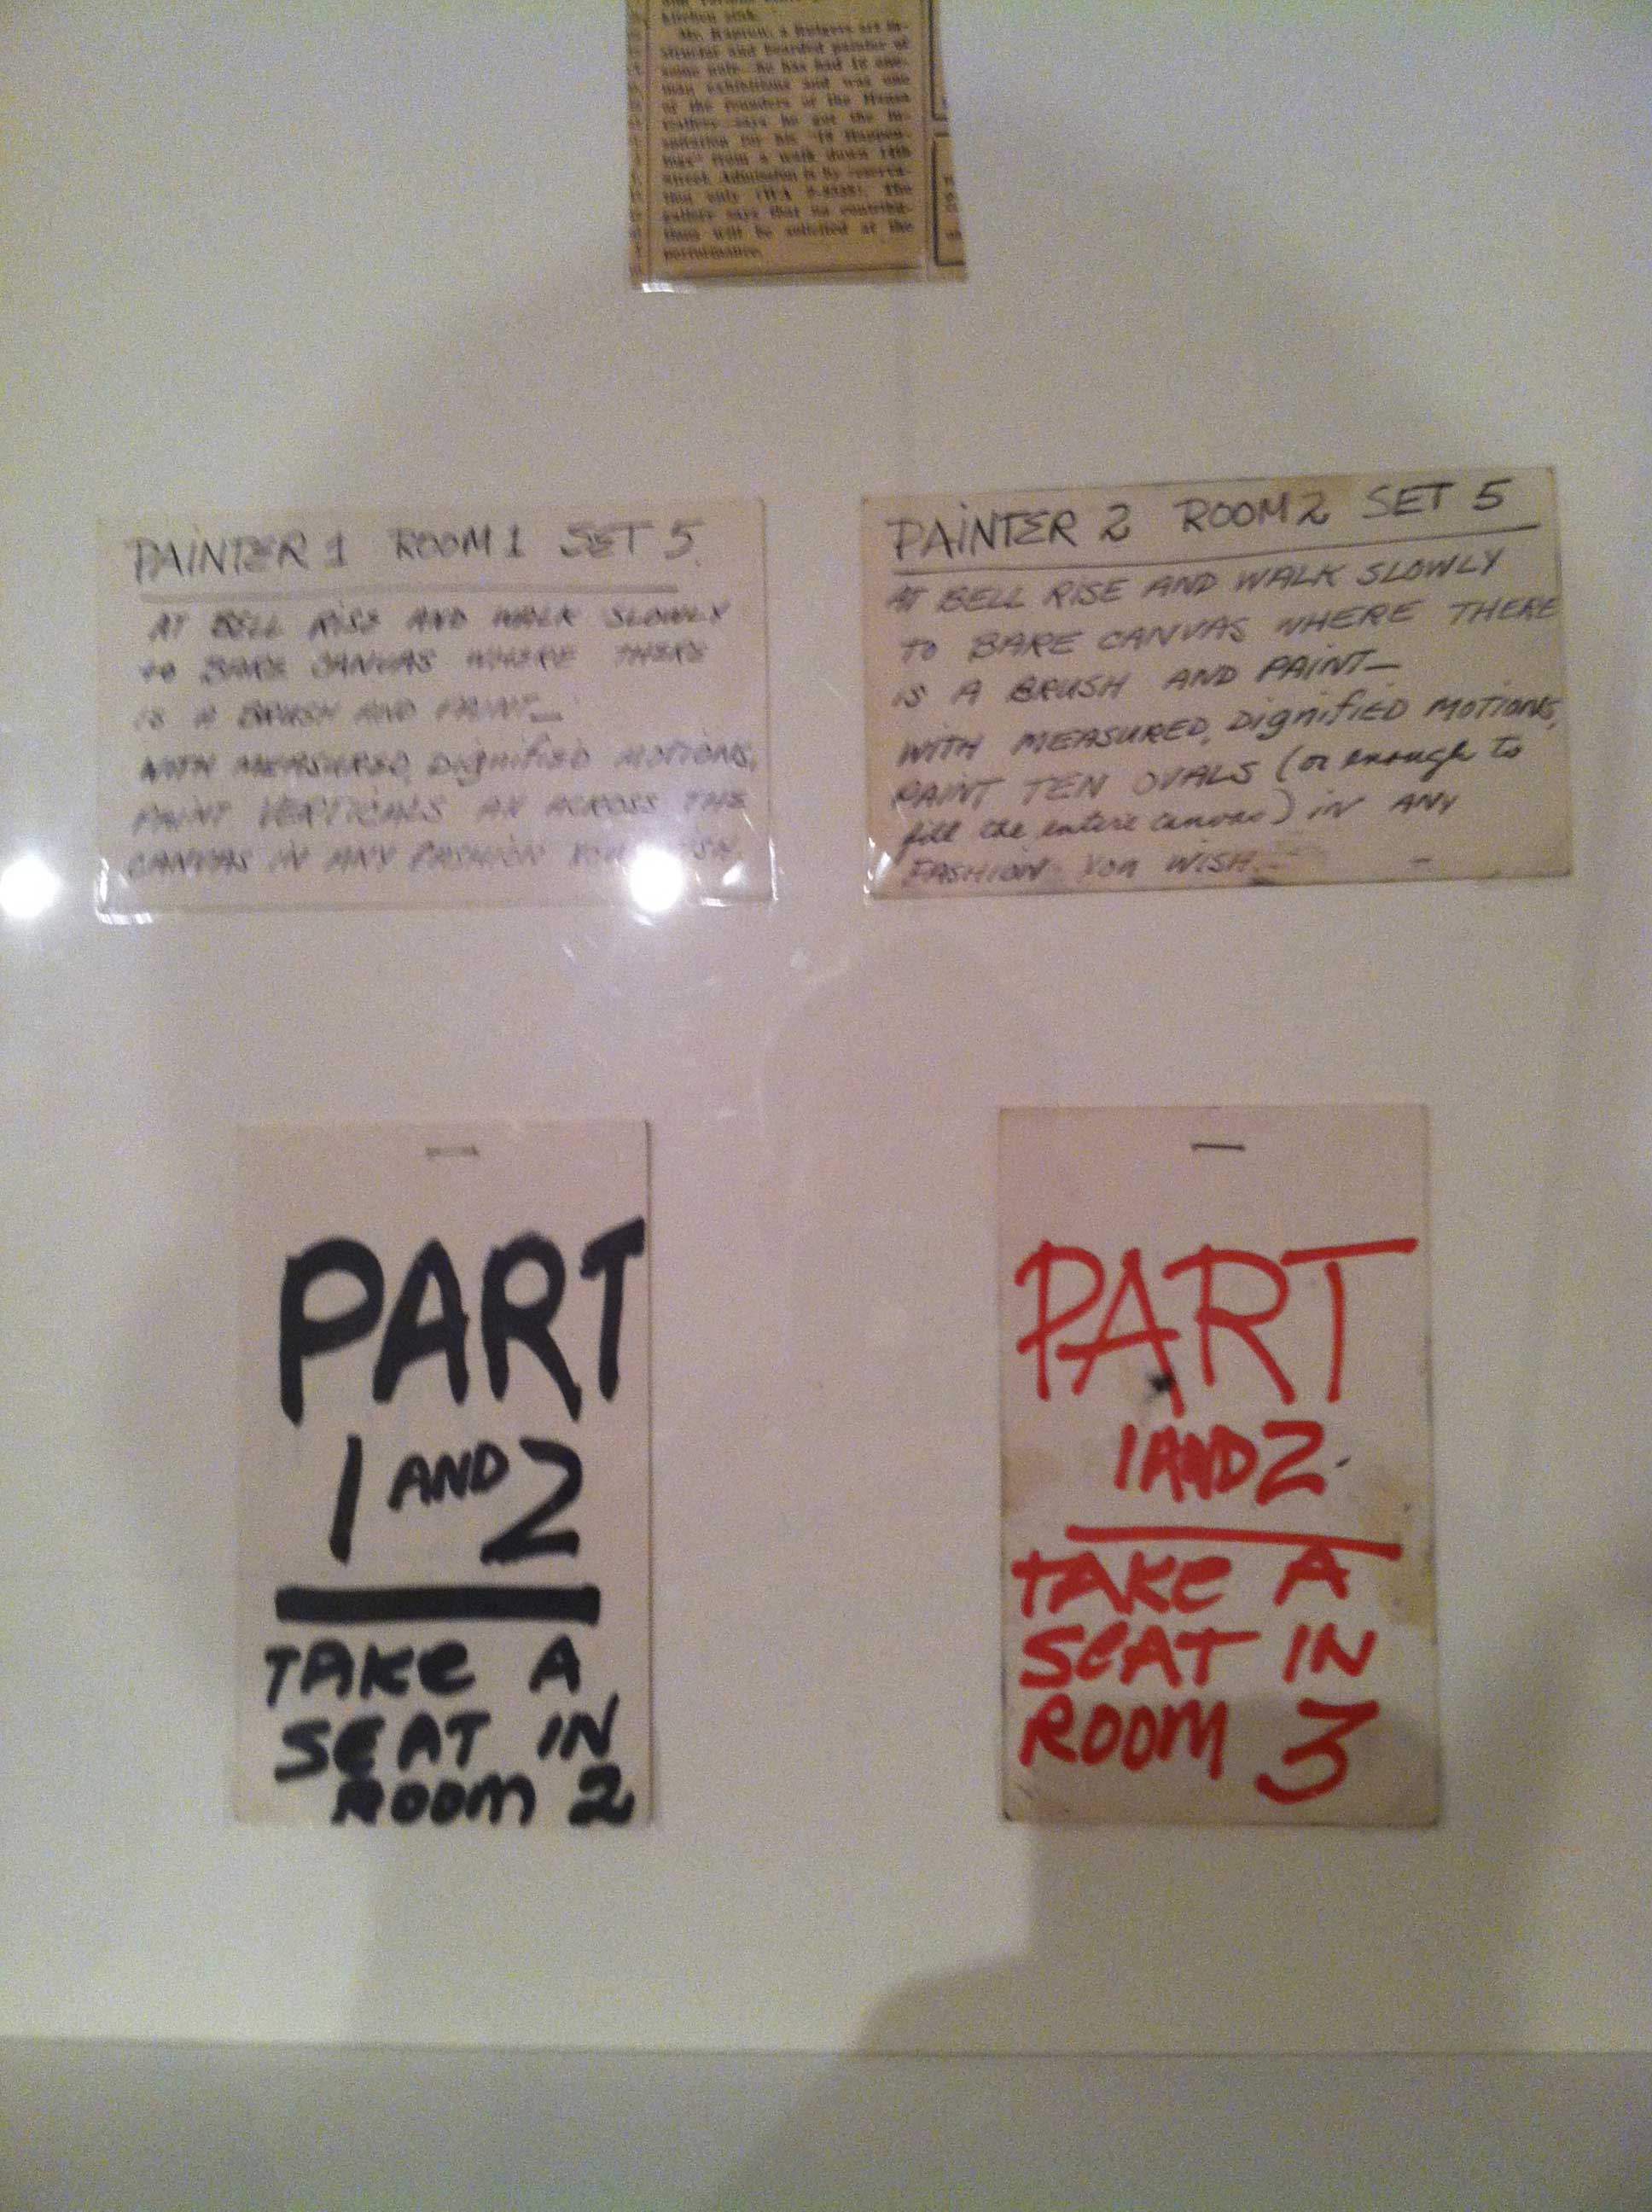 kitchen sink.
Mr. Kaprow, a Rutgers art in-
structor and bearded painter of
some note—he has had 10 one-
man exhibitions and was one
of the founders of the Hansa
Gallery—says he got the in-
spiration for his "18 Happen-
ings" from a walk down 14th
Street. Admission is by reserva-
tion only (WA
The
gallery says that no contribu-
tions will be solicited at the
performance.
PAINTER 1 ROOM 1 SET 5
AT BELL RISE AND WALK SLOWLY
TO BARE CANVAS WHERE THERE
IS A BRUSH AND PAINT—
WITH MEASURED, DIgnifiED MOTIONS,
PAINT VERTICALS ACROSS THE
CANVAS IN ANY FASHION YOU WISH.
PAINTER 2 ROOM 2 SET 5
AT BELL RISE AND WALK SLOWLY
TO BARE CANVAS WHERE THERE
IS A BRUSH AND PAINT—
WITH MEASURED, DIgnifiED MOTIONS,
PAINT TEN OVALS (or enough to
fill the entire canvas) IN ANY
FASHION YOU WISH
PART
1 AND 2
TAKE A
SEAT IN
ROOM 2
PART
1 AND 2
TAKE A
SEAT IN
ROOM 3